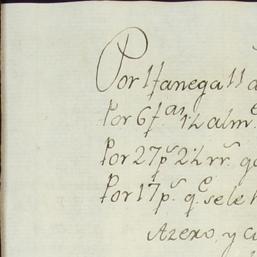 Por 1 fanega 11 a
Por 6 f.as 1½ alm.e
Por 27 p.s 2½ rr.s q
Por 17 p.s q.e sele h
Azero, y c